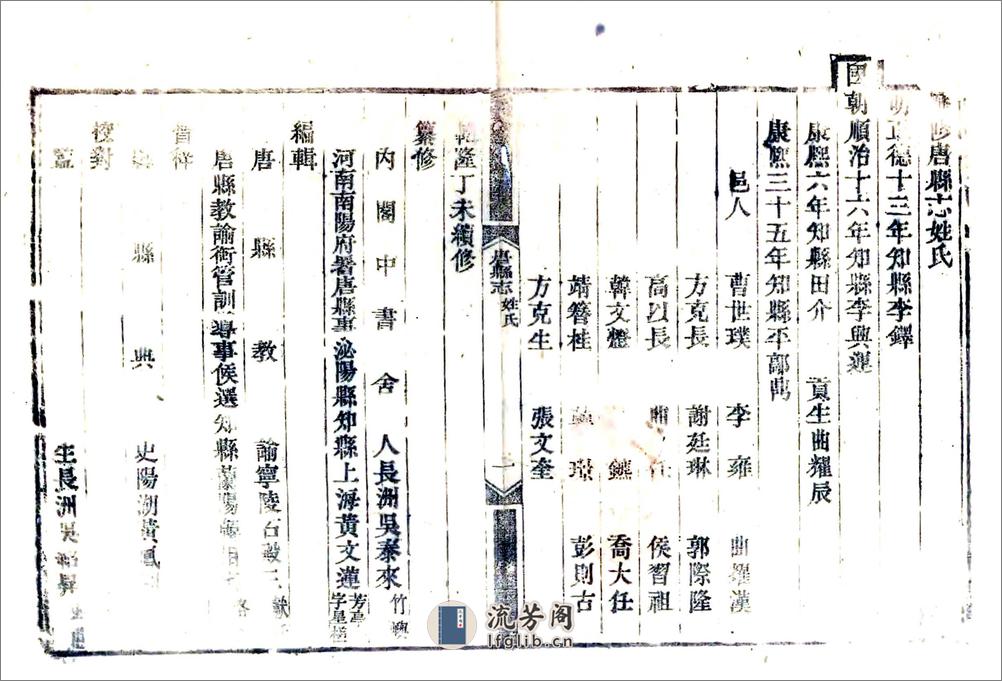 修唐縣志姓氏
明正德十三年知縣李鐸
國朝順治十六年知縣李興運
康熙六年知縣田介 貢生曲耀辰
康熙三十五年知縣平鄗鼎
邑人 曹世璞 李雍 曲耀漢
方克長 謝廷琳 郭際隆
高以長 侯習祖
韓文燈 鑣 喬大任
靖簪桂 璟 彭則古
方克生 張文奎
唐縣志 姓氏 一
乾隆丁未續修
纂修
內閣中書舍人長洲吳泰來 竹嶼
河南南陽府署唐縣事泌陽縣知縣上海黃文蓮 芳亭 字星槎
編輯
唐縣教諭寧陵石
唐縣教諭銜管訓導事候選知縣
督梓
縣典史陽湖黃
校對
監生長洲吳
流芳阁
lfglib.cn